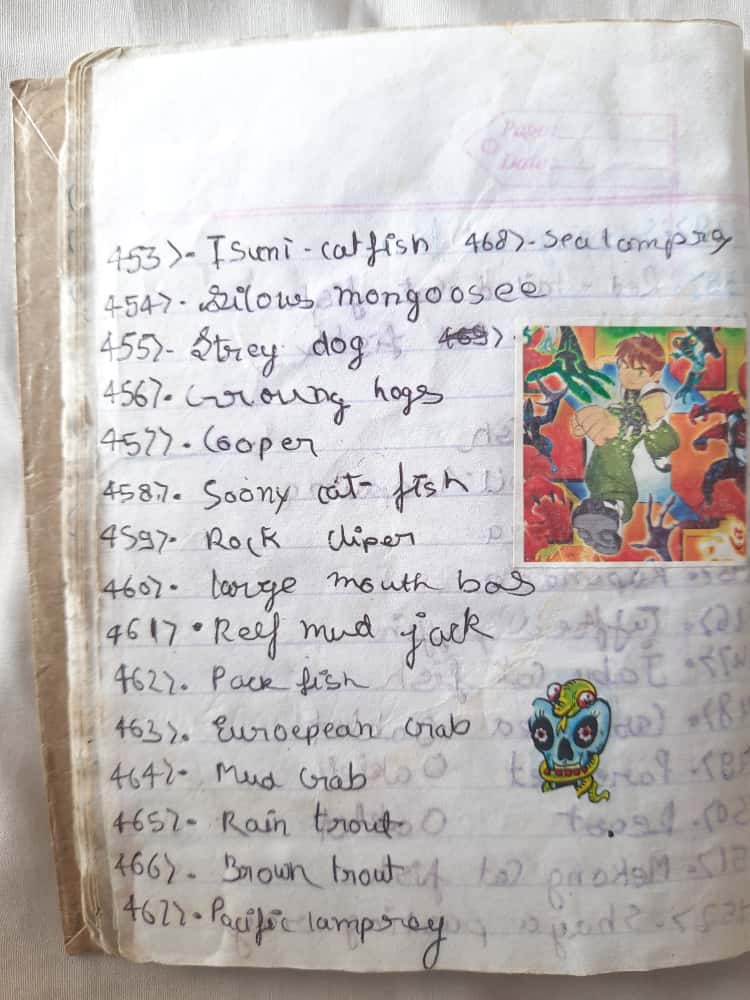 Page:
Date:
453>- Isumi-catfish 468>- sea lompray
454>. Silows mongoosee
455>- Strey dog 469>.
456>. Groung hogs
457>. Cooper
458>. Soony cat-fish
459>- Rock cliper
460>. large mouth bas
461>. Reef mud jack
462>. Pack fish
463>. Euroepean crab
464>- Mud crab
465>- Rain trout
466>. Brown trout
467>. Pacific lamproy